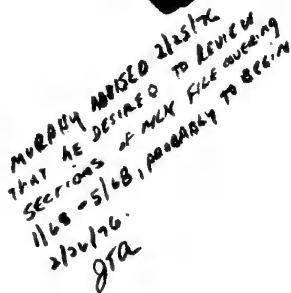 MURPHY ADVISED 2/25/76
THAT HE DESIRED TO REVIEW
SECTIONS OF MLK FILE COVERING
1/68 - 5/68, PROBABLY TO BEGIN
2/26/76.
JTA